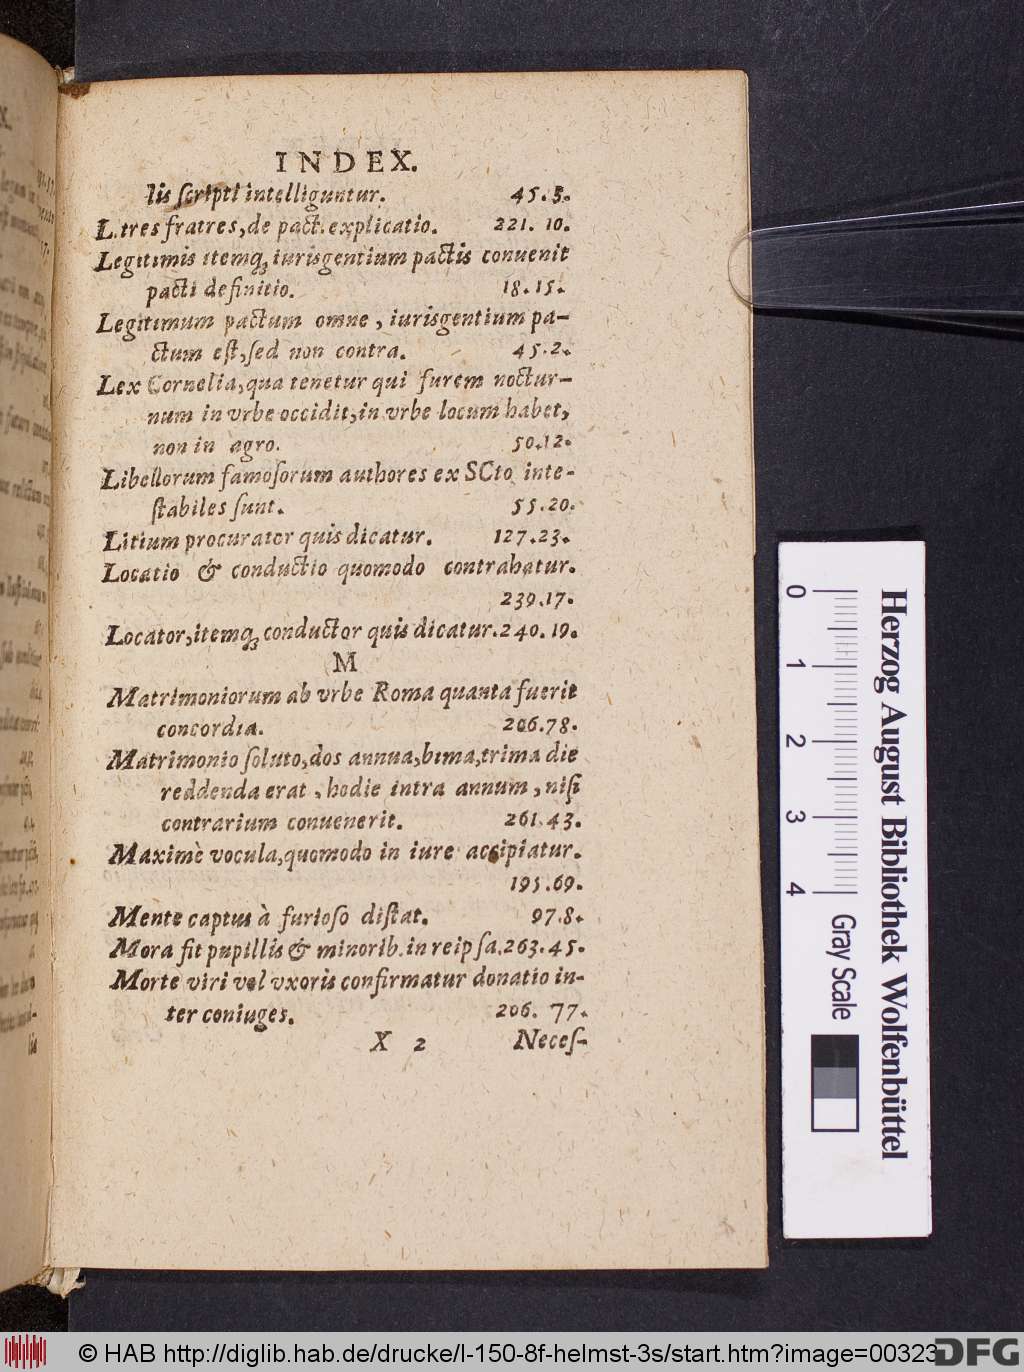 INDEX.
lis scripti intelliguntur. 45.5.
L. tres fratres, de pact. explicatio. 221. 10.
Legitimis itemq; iurisgentium pactis conuenit
pacti definitio. 18.15.
Legitimum pactum omne, iurisgentium pa-
ctum est, sed non contra. 45.2.
Lex Cornelia, qua tenetur qui furem noctur-
num in vrbe occidit, in vrbe locum habet,
non in agro. 50.12.
Libellorum famosorum authores ex SCto inte-
stabiles sunt. 55.20.
Litium procurator quis dicatur. 127.23.
Locatio & conductio quomodo contrahatur.
239.17.
Locator, itemq; conductor quis dicatur. 240.19.
M
Matrimoniorum ab vrbe Roma quanta fuerit
concordia. 206.78.
Matrimonio soluto, dos annua, bima, trima die
reddenda erat, hodie intra annum, nisi
contrarium conuenerit. 261.43.
Maximè vocula, quomodo in iure accipiatur.
195.69.
Mente captus à furioso distat. 97.8.
Mora fit pupillis & minorib. in re ipsa. 263.45.
Morte viri vel vxoris confirmatur donatio in-
ter coniuges. 206. 77.
X 2 Neces-
0 1 2 3 4
Gray Scale
Herzog August Bibliothek Wolfenbüttel
© HAB http://diglib.hab.de/drucke/l-150-8f-helmst-3s/start.htm?image=00323
DFG